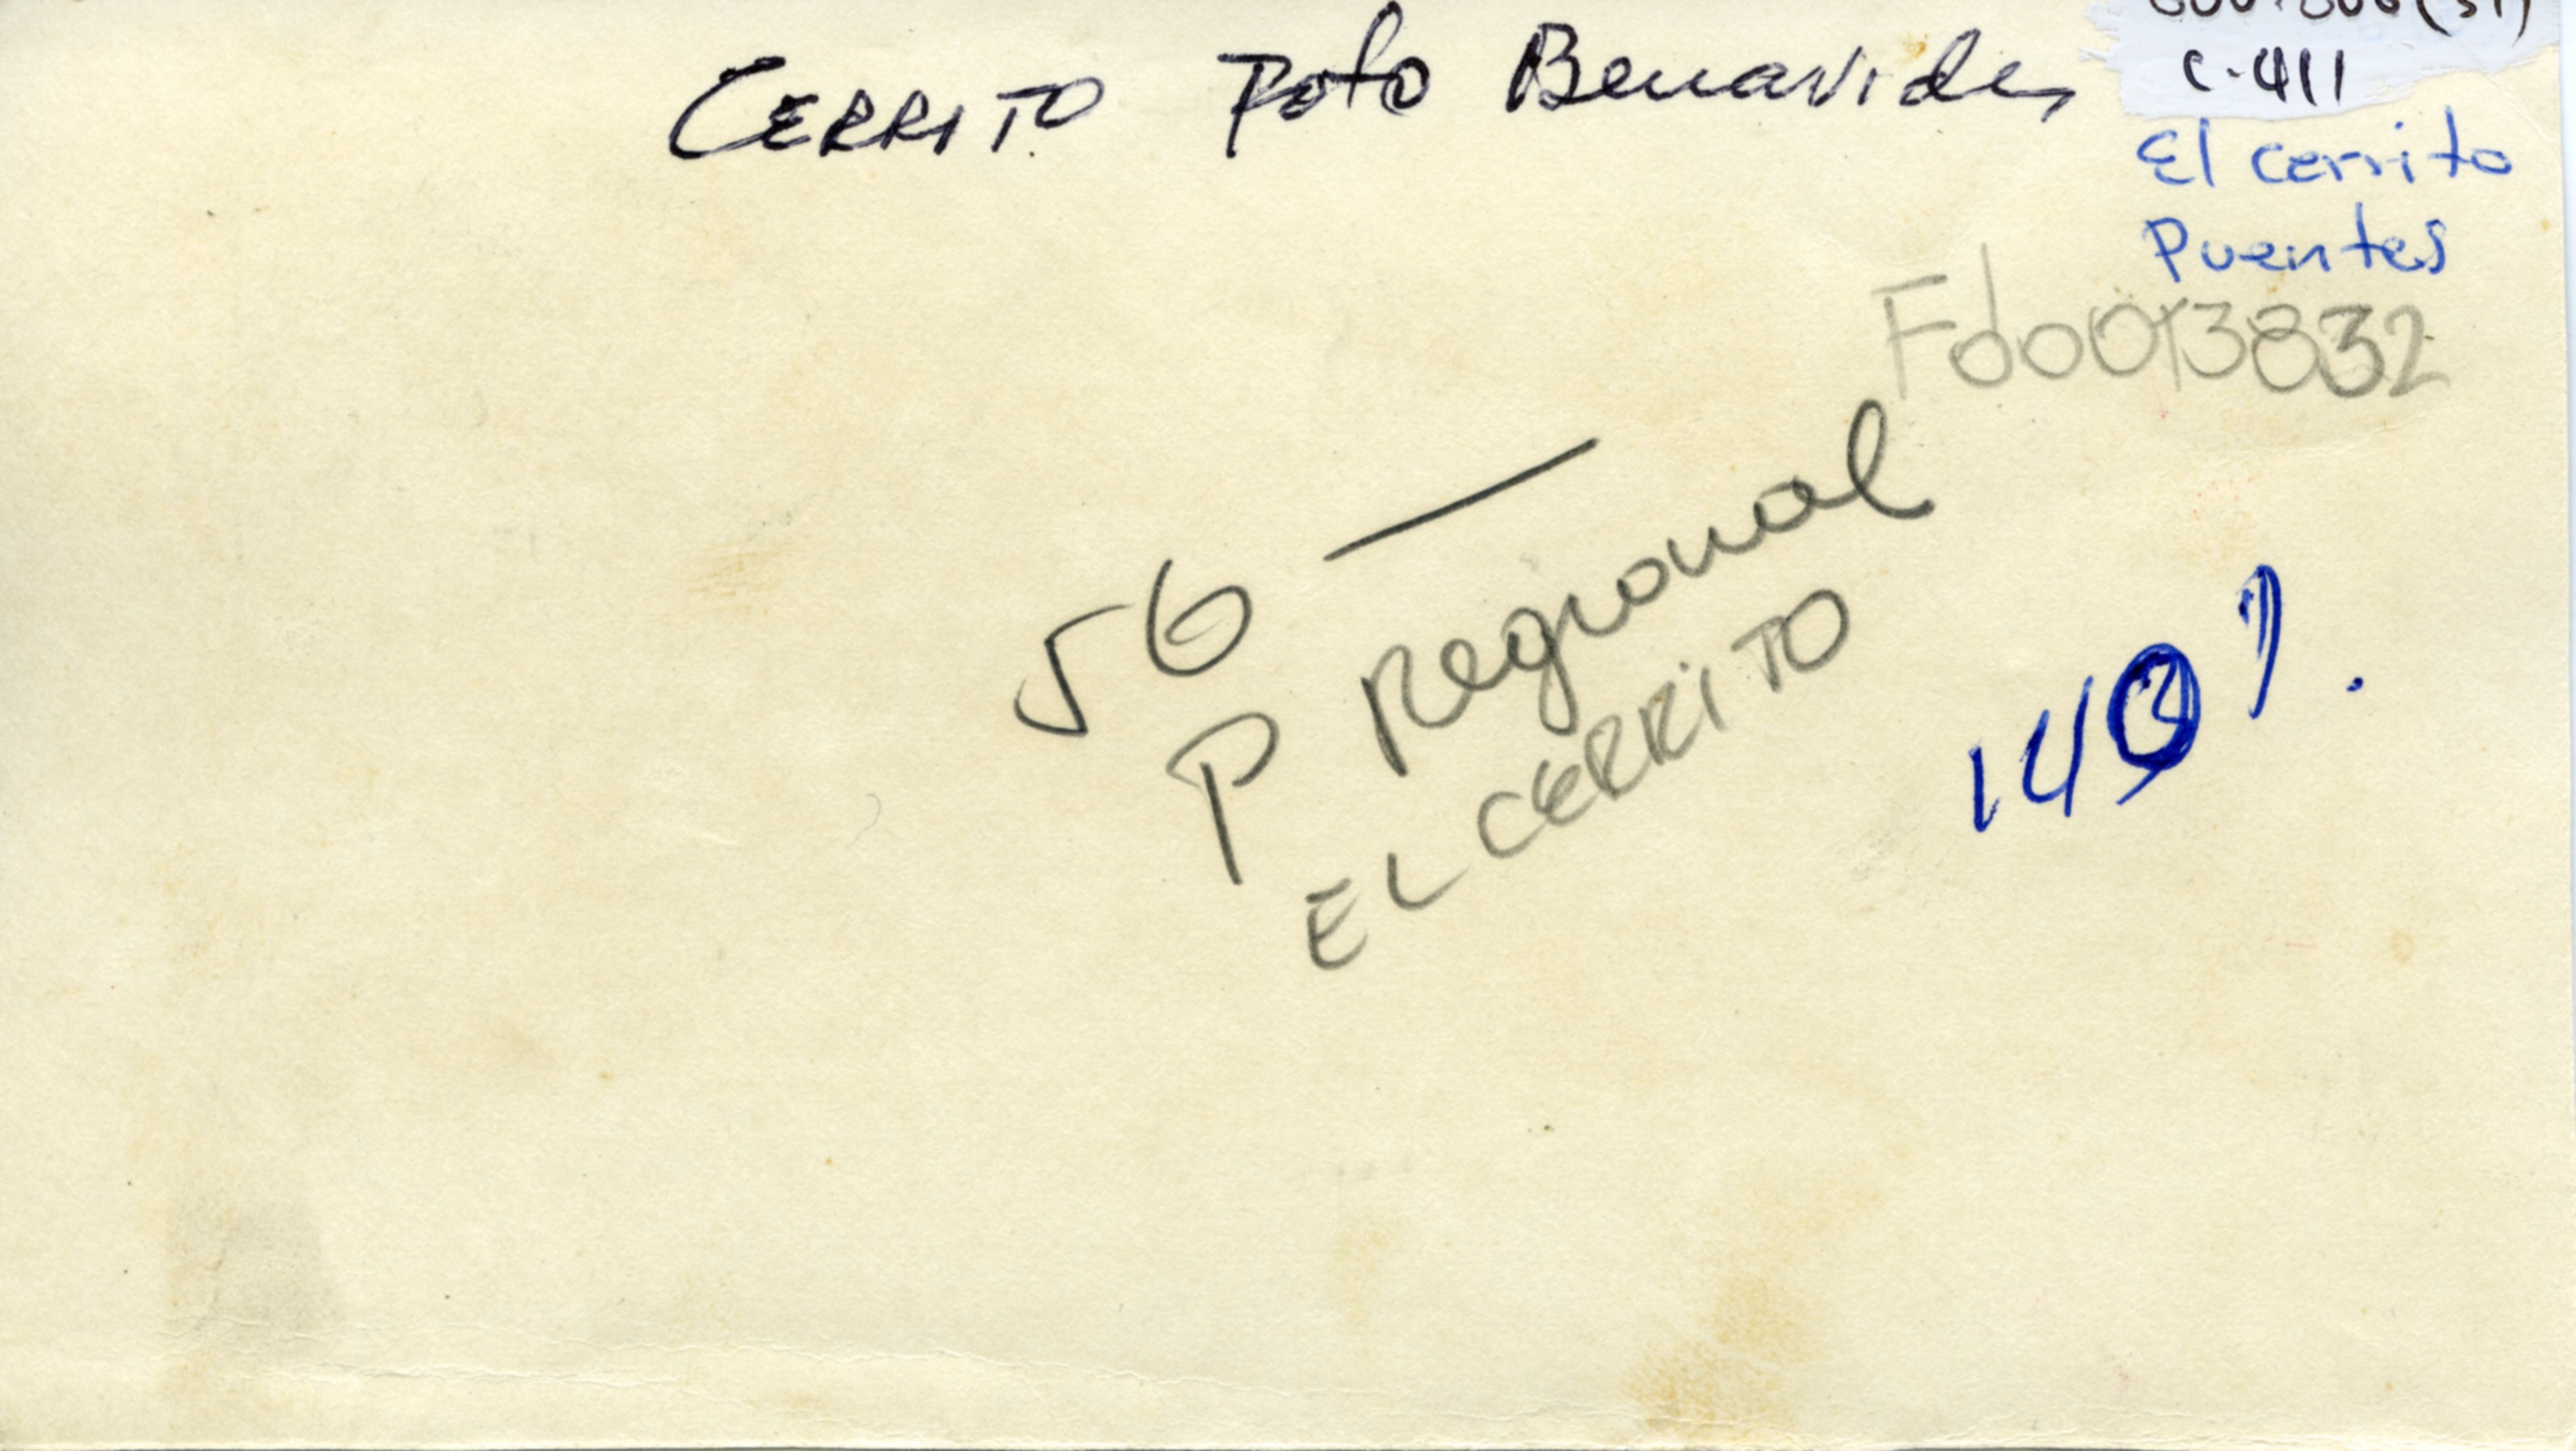 CERRITO Foto Benavides
C-411
El cerrito
Puentes
Fd0013832
56 —
P Regional
EL CERRITO